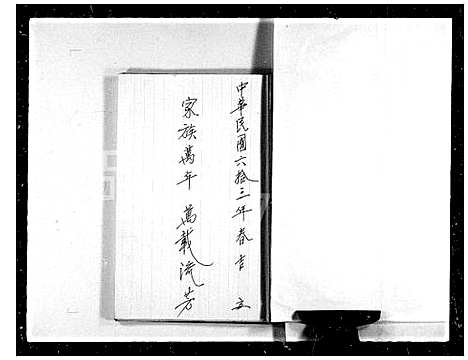 中華民國六拾三年春吉立
家族萬年 萬載流芳